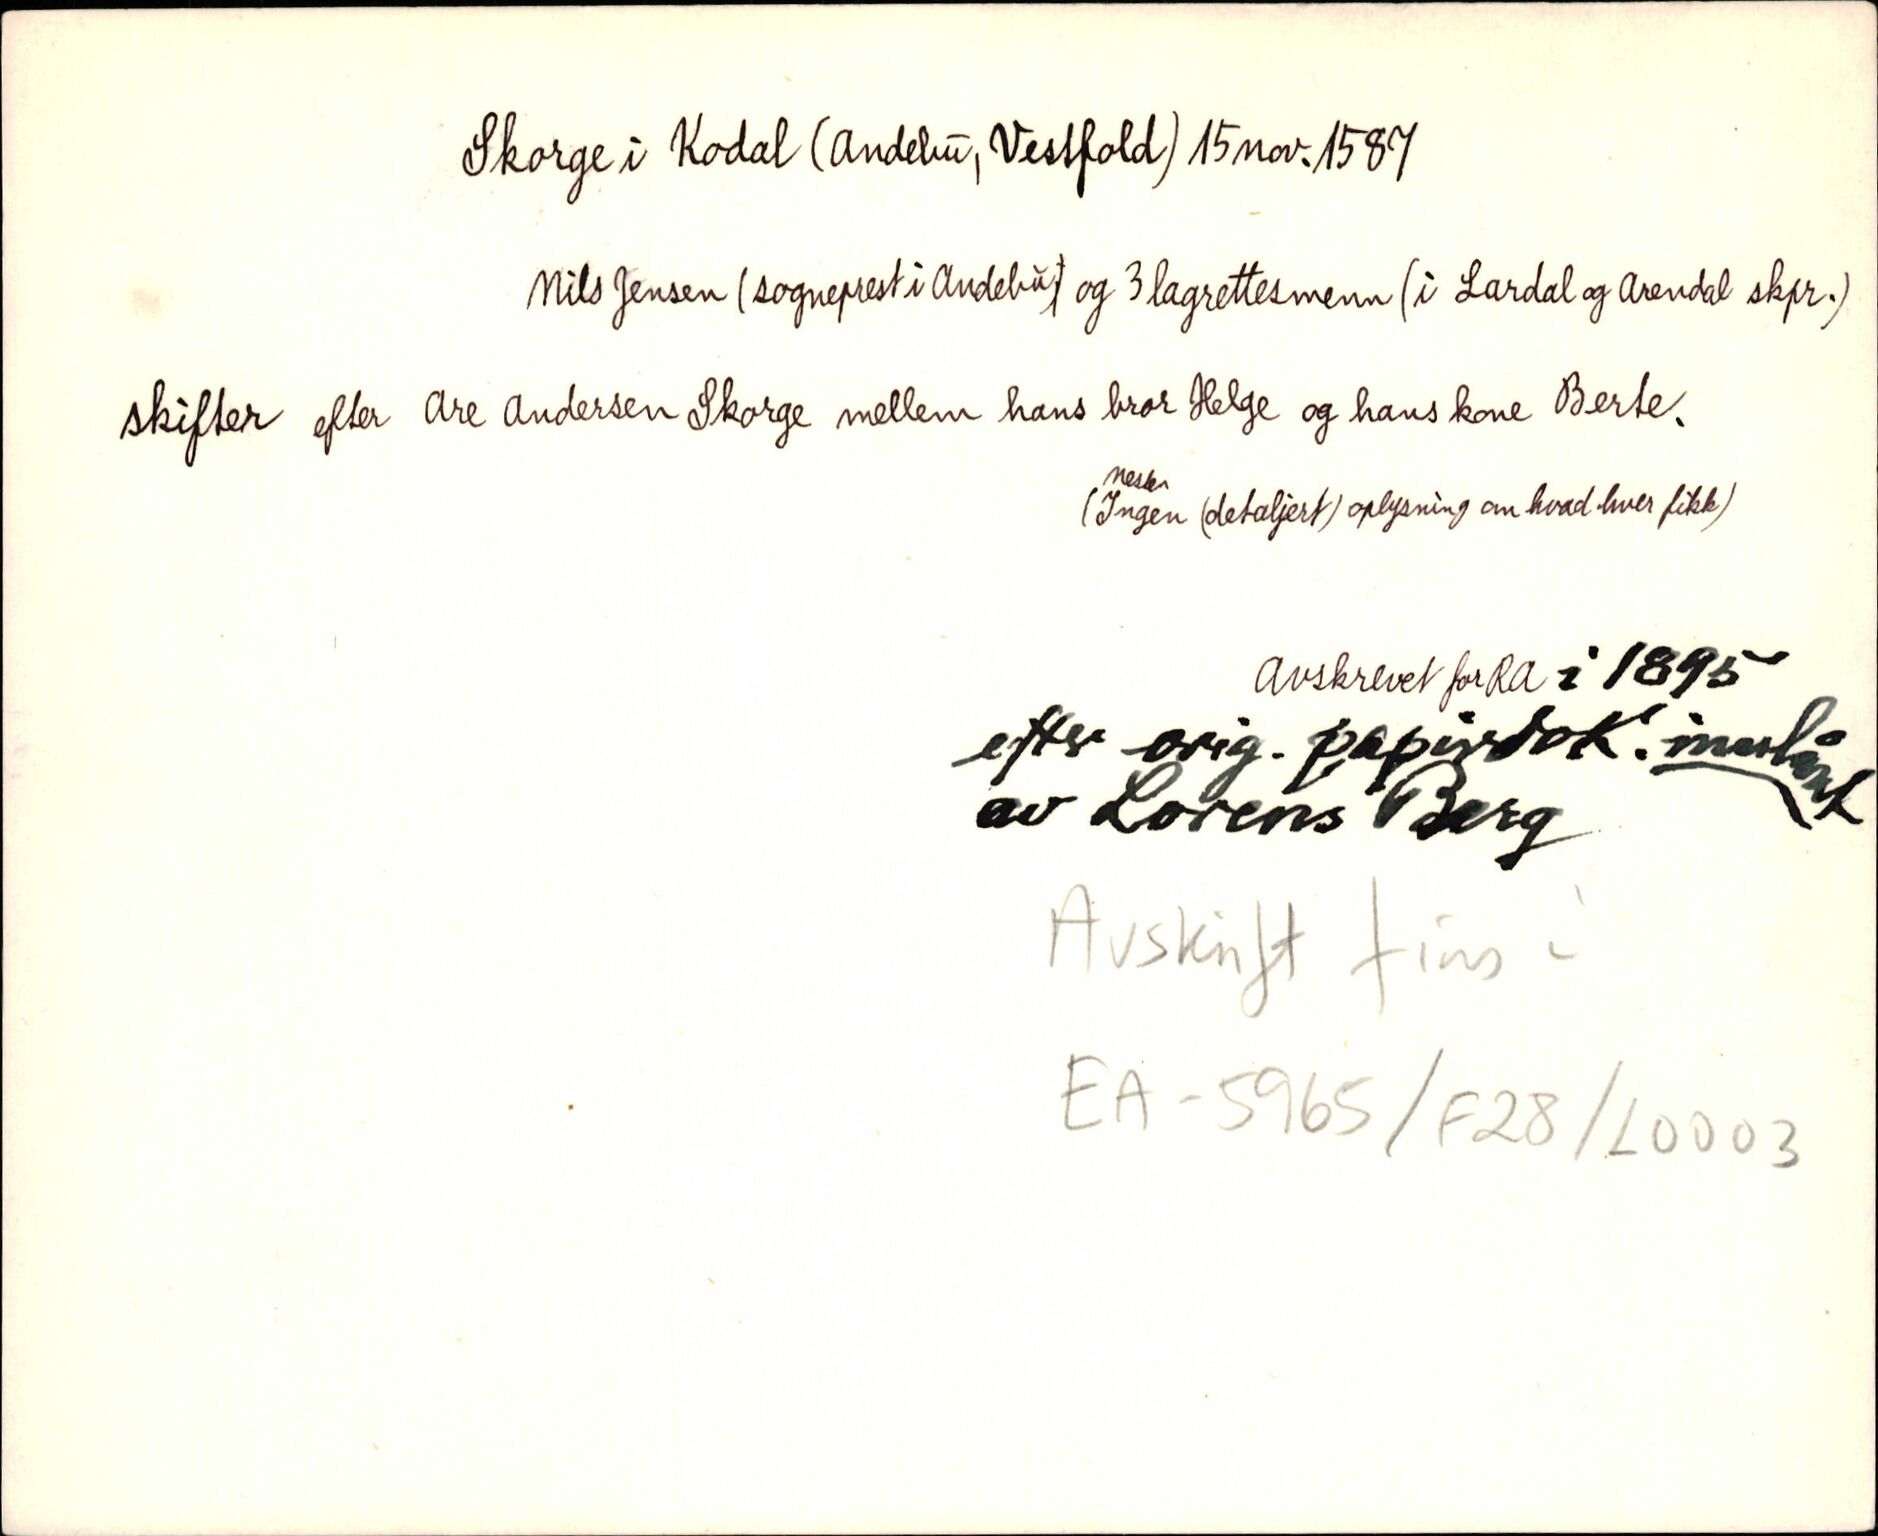 Skorge i Kodal (Andebu, Vestfold) 15 nov. 1587
Nils Jensen (sogneprest i Andebu) og 3 lagrettesmenn (i Lardal og Arendal skpr.)
skifter efter Are Andersen Skorge mellem hans bror Helge og hans kone Berte.
nesten
(Ingen (detaljert) oplysning om hvad hver fikk)
Avskrevet for RA i 1895
efter orig. papirdok. innlånt
av Lorens Berg
Avskrift fins i
EA-5965/F28/L0003